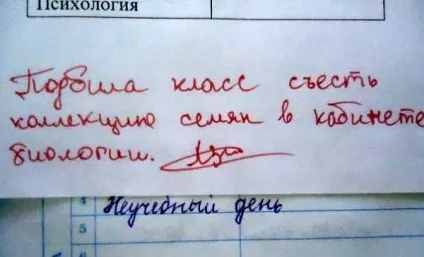 Психология
Подбила класс съесть
коллекцию семян в кабинете
биологии.
4 Неучебный день
5
6